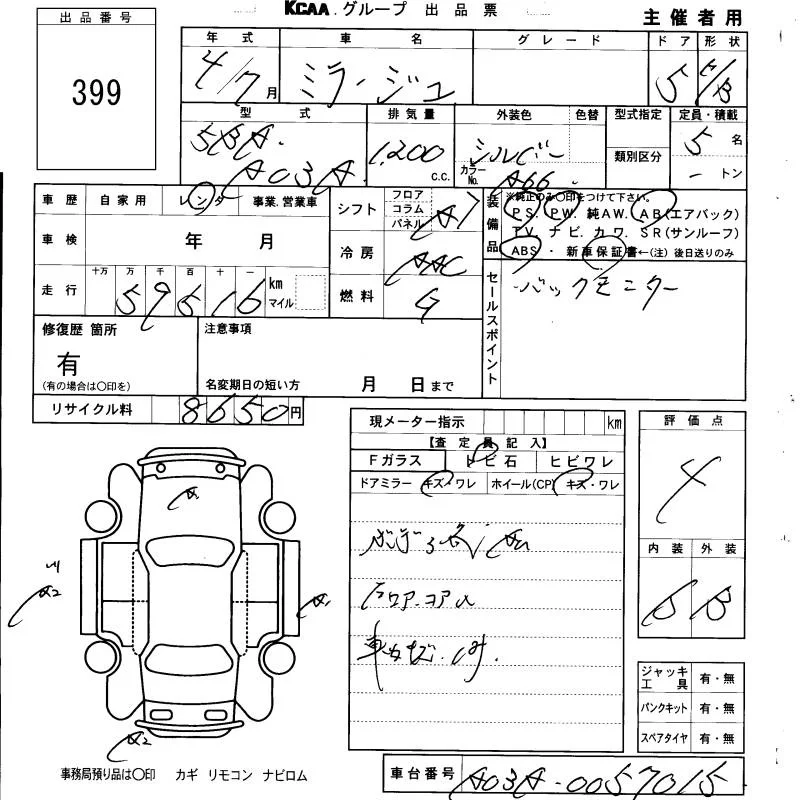 KCAA グループ 出品票
主催者用
出品番号
399
年式 車名 グレード ドア 形状
4/7月 ミラージュ 5 H/B
型式 排気量 外装色 色替 型式指定 定員・積載
5BA. 1,200 c.c. シルバー 5 名
A03A カラーNo. A66 類別区分 - トン
車歴 自家用 レンタ 事業.営業車
シフト フロア コラム パネル AT
装備品 ※純正のみ〇印をつけて下さい。
PS. PW. 純AW. AB(エアバック)
TV. ナビ. カワ. SR(サンルーフ)
ABS ・ 新車保証書←(注) 後日送りのみ
車検 年 月
冷房 AAC
走行 十万 万 千 百 十 一 km マイル
59516
燃料 G
セールスポイント バックモニター
修復歴 箇所 注意事項
有
(有の場合は〇印を) 名変期日の短い方 月 日まで
リサイクル料 8650円
現メーター指示 km
【査定員記入】
Fガラス トビ石 ヒビワレ
ドアミラー キズ・ワレ ホイール(CP) キズ・ワレ
フロア.コアA
評価点
4
内装 外装
B B
A1
A2
A1
A2
ジャッキ工具 有・無
パンクキット 有・無
スペアタイヤ 有・無
事務局預り品は〇印 カギ リモコン ナビロム
車台番号 A03A-0057015